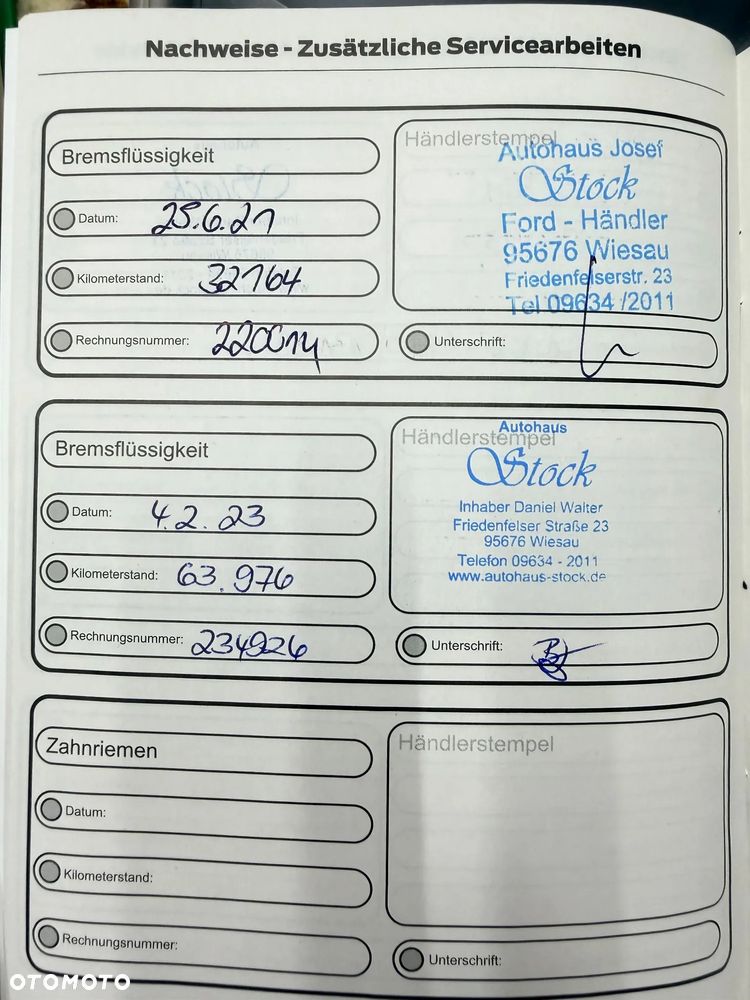 Nachweise - Zusätzliche Servicearbeiten
Bremsflüssigkeit
Datum: 25.6.21
Kilometerstand: 32164
Rechnungsnummer: 220014
Händlerstempel
Autohaus Josef
Stock
Ford - Händler
95676 Wiesau
Friedenfelserstr. 23
Tel 09634 /2011
Unterschrift:
Bremsflüssigkeit
Datum: 4.2.23
Kilometerstand: 63.976
Rechnungsnummer: 234926
Händlerstempel
Autohaus
Stock
Inhaber Daniel Walter
Friedenfelser Straße 23
95676 Wiesau
Telefon 09634 - 2011
www.autohaus-stock.de
Unterschrift:
Zahnriemen
Datum:
Kilometerstand:
Rechnungsnummer:
Händlerstempel
Unterschrift:
OTOMOTO